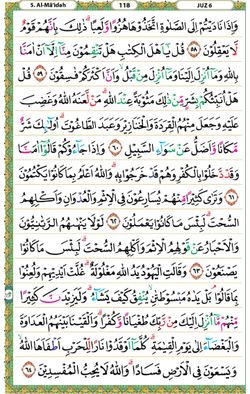 5. Al-Mā'idah 118 JUZ 6
وَإِذَا نَادَيْتُمْ إِلَى الصَّلٰوةِ اتَّخَذُوهَا هُزُوًا وَّلَعِبًا ذٰلِكَ بِأَنَّهُمْ قَوْمٌ
لَّا يَعْقِلُوْنَ ٥٨ قُلْ يٰٓأَهْلَ الْكِتٰبِ هَلْ تَنْقِمُوْنَ مِنَّآ إِلَّآ أَنْ اٰمَنَّا
بِاللّٰهِ وَمَآ أُنْزِلَ إِلَيْنَا وَمَآ أُنْزِلَ مِنْ قَبْلُ وَأَنَّ أَكْثَرَكُمْ فٰسِقُوْنَ ٥٩
قُلْ هَلْ أُنَبِّئُكُمْ بِشَرٍّ مِّنْ ذٰلِكَ مَثُوْبَةً عِنْدَ اللّٰهِ مَنْ لَّعَنَهُ اللّٰهُ وَغَضِبَ
عَلَيْهِ وَجَعَلَ مِنْهُمُ الْقِرَدَةَ وَالْخَنَازِيْرَ وَعَبَدَ الطَّاغُوْتَ أُولٰٓئِكَ شَرٌّ
مَّكَانًا وَّأَضَلُّ عَنْ سَوَآءِ السَّبِيْلِ ٦٠ وَإِذَا جَآءُوْكُمْ قَالُوْٓا اٰمَنَّا
وَقَدْ دَّخَلُوْا بِالْكُفْرِ وَهُمْ قَدْ خَرَجُوْا بِهٖ وَاللّٰهُ أَعْلَمُ بِمَا كَانُوْا يَكْتُمُوْنَ
٦١ وَتَرٰى كَثِيْرًا مِّنْهُمْ يُسَارِعُوْنَ فِى الْإِثْمِ وَالْعُدْوَانِ وَأَكْلِهِمُ
السُّحْتَ لَبِئْسَ مَا كَانُوْا يَعْمَلُوْنَ ٦٢ لَوْلَا يَنْهٰىهُمُ الرَّبّٰنِيُّوْنَ
وَالْأَحْبَارُ عَنْ قَوْلِهِمُ الْإِثْمَ وَأَكْلِهِمُ السُّحْتَ لَبِئْسَ مَا كَانُوْا
يَصْنَعُوْنَ ٦٣ وَقَالَتِ الْيَهُوْدُ يَدُ اللّٰهِ مَغْلُوْلَةٌ غُلَّتْ أَيْدِيْهِمْ وَلُعِنُوْا
بِمَا قَالُوْا بَلْ يَدٰهُ مَبْسُوْطَتٰنِ يُنْفِقُ كَيْفَ يَشَآءُ وَلَيَزِيْدَنَّ كَثِيْرًا
مِّنْهُمْ مَّآ أُنْزِلَ إِلَيْكَ مِنْ رَّبِّكَ طُغْيَانًا وَّكُفْرًا وَأَلْقَيْنَا بَيْنَهُمُ الْعَدَاوَةَ
وَالْبَغْضَآءَ إِلٰى يَوْمِ الْقِيٰمَةِ كُلَّمَآ أَوْقَدُوْا نَارًا لِّلْحَرْبِ أَطْفَأَهَا اللّٰهُ
وَيَسْعَوْنَ فِى الْأَرْضِ فَسَادًا وَاللّٰهُ لَا يُحِبُّ الْمُفْسِدِيْنَ ٦٤